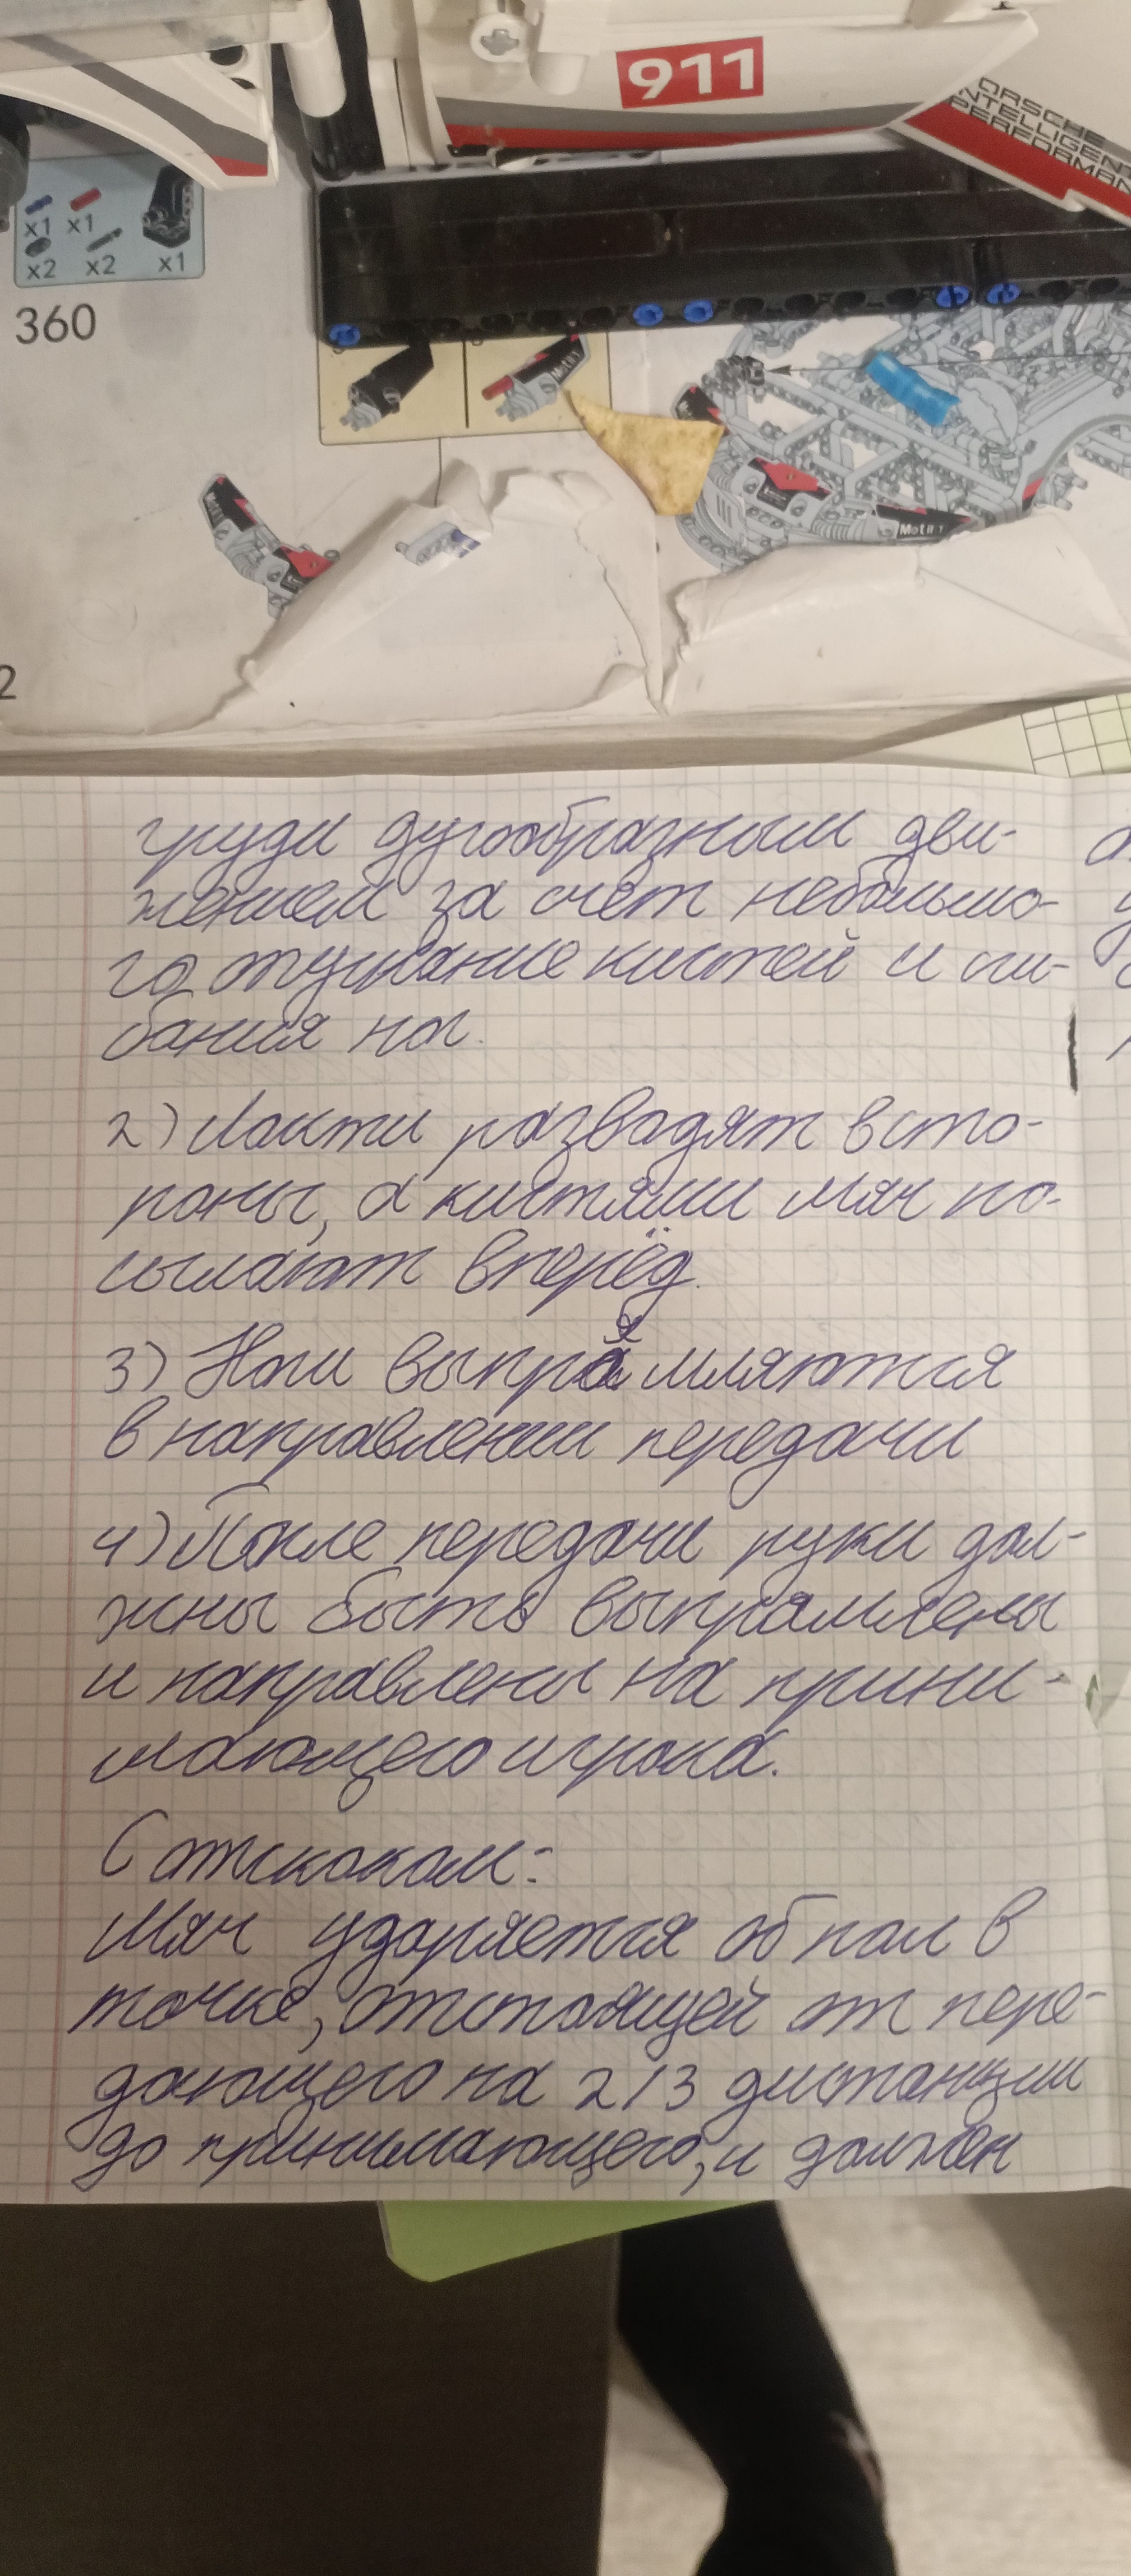 911
PORSCHE
INTELLIGENT
PERFORMAN
x1 x1
x2 x2 x1
360
2
груди дугообразным дви-
жением за счет небольшо-
го опускание кистей и сги-
бания ног.
2) Локти разводят в сто-
роны, а кистями мяч по-
сылают вперёд.
3) Ноги выпрямляются
в направлении передачи
4) После передачи руки дол-
жны быть выпрямлены
и направлены на прини-
мающего игрока.
С отскоком:
Мяч ударяется об пол в
точке, отстоящей от пере-
дающего на 2/3 дистанции
до принимающего, и должен